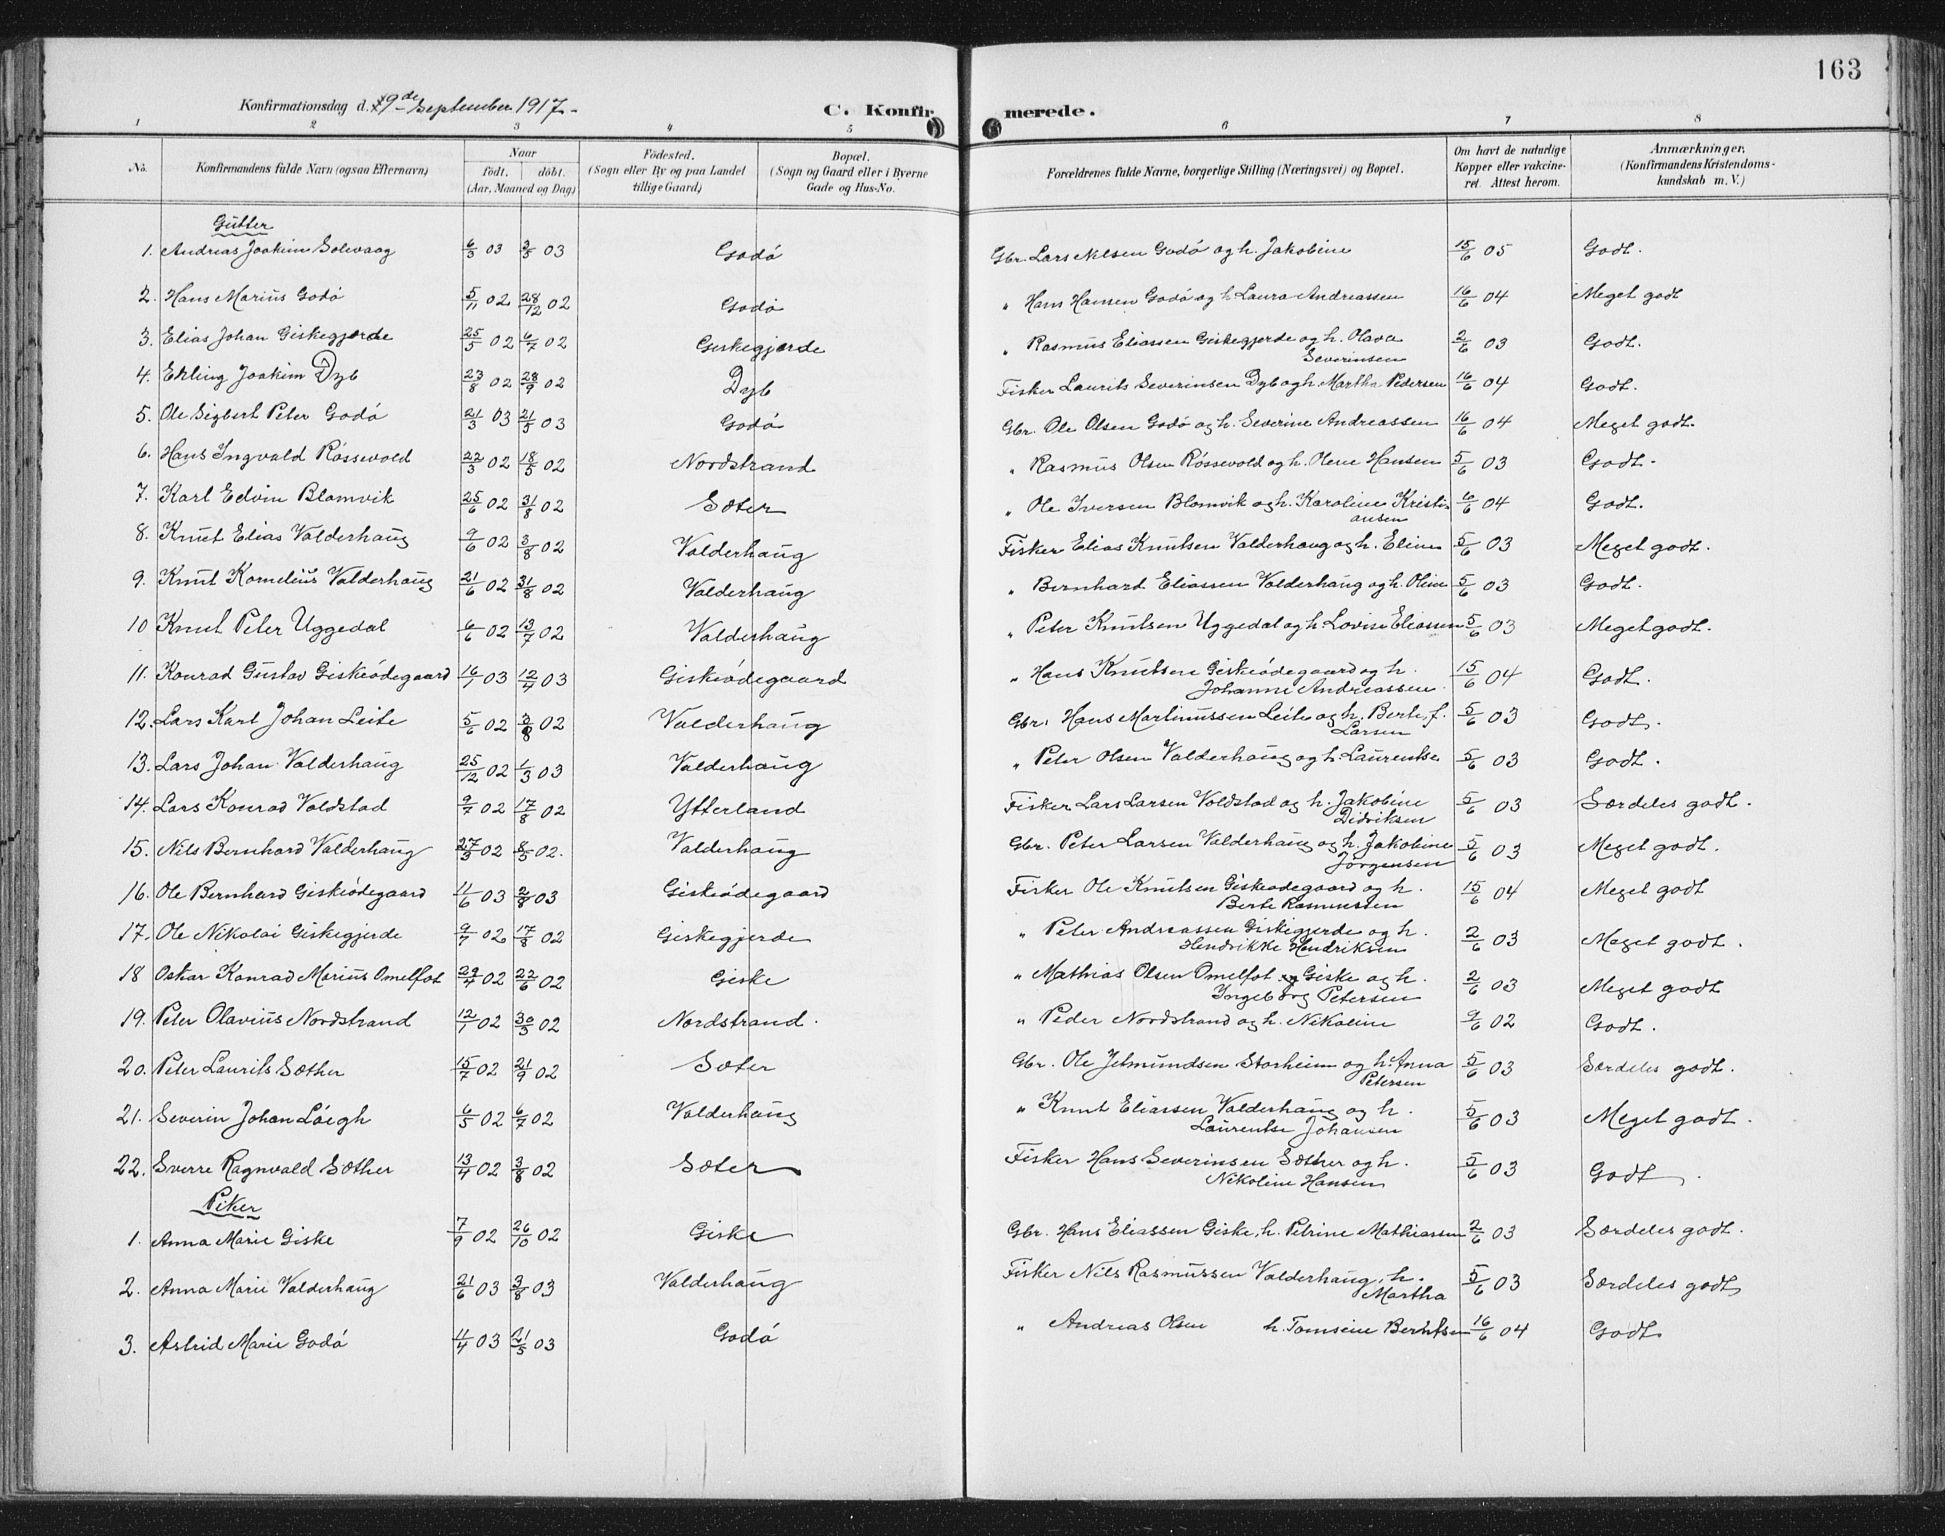 163
Konfirmationsdag d. 19de September 1917.
C. Konfirmerede.
1 2 3 4 5 6 7 8
No. Konfirmandens fulde Navn (ogsaa Efternavn) Naar födt. döbt. (Aar, Maaned og Dag) Födested. (Sogn eller By og paa Landet tillige Gaard) Bopæl. (Sogn og Gaard eller i Byerne Gade og Hus-No. Forældrenes fulde Navne, borgerlige Stilling (Næringsvei) og Bopæl. Om havt de naturlige Kopper eller vakcineret. Attest herom. Anmærkninger. (Konfirmandens Kristendomskundskab m. V.)
Gutter
1. Andreas Joakim Solevaag 6/3 03 3/5 03 Godö Gbr. Lars Nilsen Godö og h. Jakobine 15/6 05 Godt.
2. Hans Marius Godö 5/11 02 28/12 02 Godö " Hans Hansen Godö og h. Laura Andreassen 16/6 04 Meget godt
3. Elias Johan Giskegjerde 25/5 02 6/7 02 Giskegjerde " Rasmus Eliassen Giskegjerde og h. Olava Severinsen 2/6 03 Godt.
4. Erling Joakim Dyb 23/8 02 28/9 02 Dyb Fisker Laurits Severinsen Dyb og h. Martha Pedersen 16/6 04 Godt.
5. Ole Sigbert Peter Godö 21/3 03 21/5 03 Godö Gbr. Ole Olsen Godö og h. Severine Andreassen 16/6 04 Meget godt.
6. Hans Ingvald Rössevold 22/3 02 18/5 02 Nordstrand " Rasmus Olsen Rössevold og h. Olene Hansen 5/6 03 Godt.
7. Karl Edvin Blomvik 25/6 02 31/8 02 Sæter " Ole Iversen Blomvik og h. Karoline Kristiansen 16/6 04 Godt.
8. Knut Elias Valderhaug 9/6 02 3/8 02 Valderhaug Fisker Elias Knutsen Valderhaug og h. Eline 5/6 03 Meget godt.
9. Knut Kornelius Valderhaug 21/6 02 31/8 02 Valderhaug " Bernhard Eliassen Valderhaug og h. Oline 5/6 03 Godt.
10 Knut Peter Uggedal 6/6 02 13/7 02 Valderhaug " Peter Knutsen Uggedal og h. Lovise Eliassen 5/6 03 Meget godt.
11. Konrad Gustav Giskeödegaard 16/1 03 12/4 03 Giskeödegaard " Hans Knutsen Giskeödegaard og h. Johanne Andreassen. 15/6 04 Godt.
12. Lars Karl Johan Leite 5/6 02 3/8 02 Valderhaug Gbr. Hans Martinussen Leite og h. Berte, f. Larsen 5/6 03 Godt.
13. Lars Johan Valderhaug 25/12 02 1/3 03 Valderhaug " Peter Olsen Valderhaug og h. Laurentse 5/6 03 Godt.
14. Lars Konrad Voldstad 9/7 02 17/8 02 Ytterland Fisker Lars Larsen Voldstad og h. Jakobine Didriksen 5/6 03 Særdeles godt.
15. Nils Bernhard Valderhaug 27/3 02 8/5 02. Valderhaug Gbr. Peter Larsen Valderhaug og h. Jakobine Jörgensen 5/6 03 Meget godt.
16. Ole Bernhard Giskeödegaard 11/6 03 2/8 03 Giskeödegaard Fisker Ole Knutsen Giskeodegaard og h. Berte Rasmussen 15/6 04 Meget godt
17. Ole Nikolai Giskegjerde 9/7 02 17/8 02 Giskegjerde " Peter Andreassen Giskegjerde og h. Hendrikke Hendriksen 2/6 03 Meget godt.
18 Oskar Konrad Marius Omelfot 29/4 02 22/6 02 Giske " Mathias Olsen Omelfot Giske og h. Ingeborg Petersen 2/6 03 Meget godt
19. Peter Olavius Nordstrand 12/1 02 30/3 02 Nordstrand. " Peder Nordstrand og h. Nikoline 9/6 02 Godt.
20. Peter Laurits Sæther 15/7 02 21/9 02 Sæter Gbr. Ole Jetmundsen Storheim og h. Anna Petersen 5/6 03 Særdeles godt.
21. Severin Johan Löigh 6/5 02 6/7 02 Valderhaug " Knut Eliassen Valderhaug og h. Laurentse Johansen 5/6 03 Meget godt.
22. Sverre Ragnvald Sæther 13/4 02 3/8 02 Sæter Fisker Hans Severinsen Sæther og h. Nikoline Hansen 5/6 03 Godt.
Piker
1. Anna Marie Giske 7/9 02 26/10 02 Giske Gbr. Hans Eliassen Giske, h. Petrine Mathiassen 2/6 03 Særdeles godt.
2. Anna Marie Valderhaug 21/6 03 3/8 03 Valderhaug Fisker Nils Rasmussen Valderhaug, h. Martha 5/6 03 Særdeles godt
3. Astrid Marie Godö 11/4 03 21/5 03 Godö " Andreas Olsen h. Tomsine Berntsen 16/6 04 Godt.